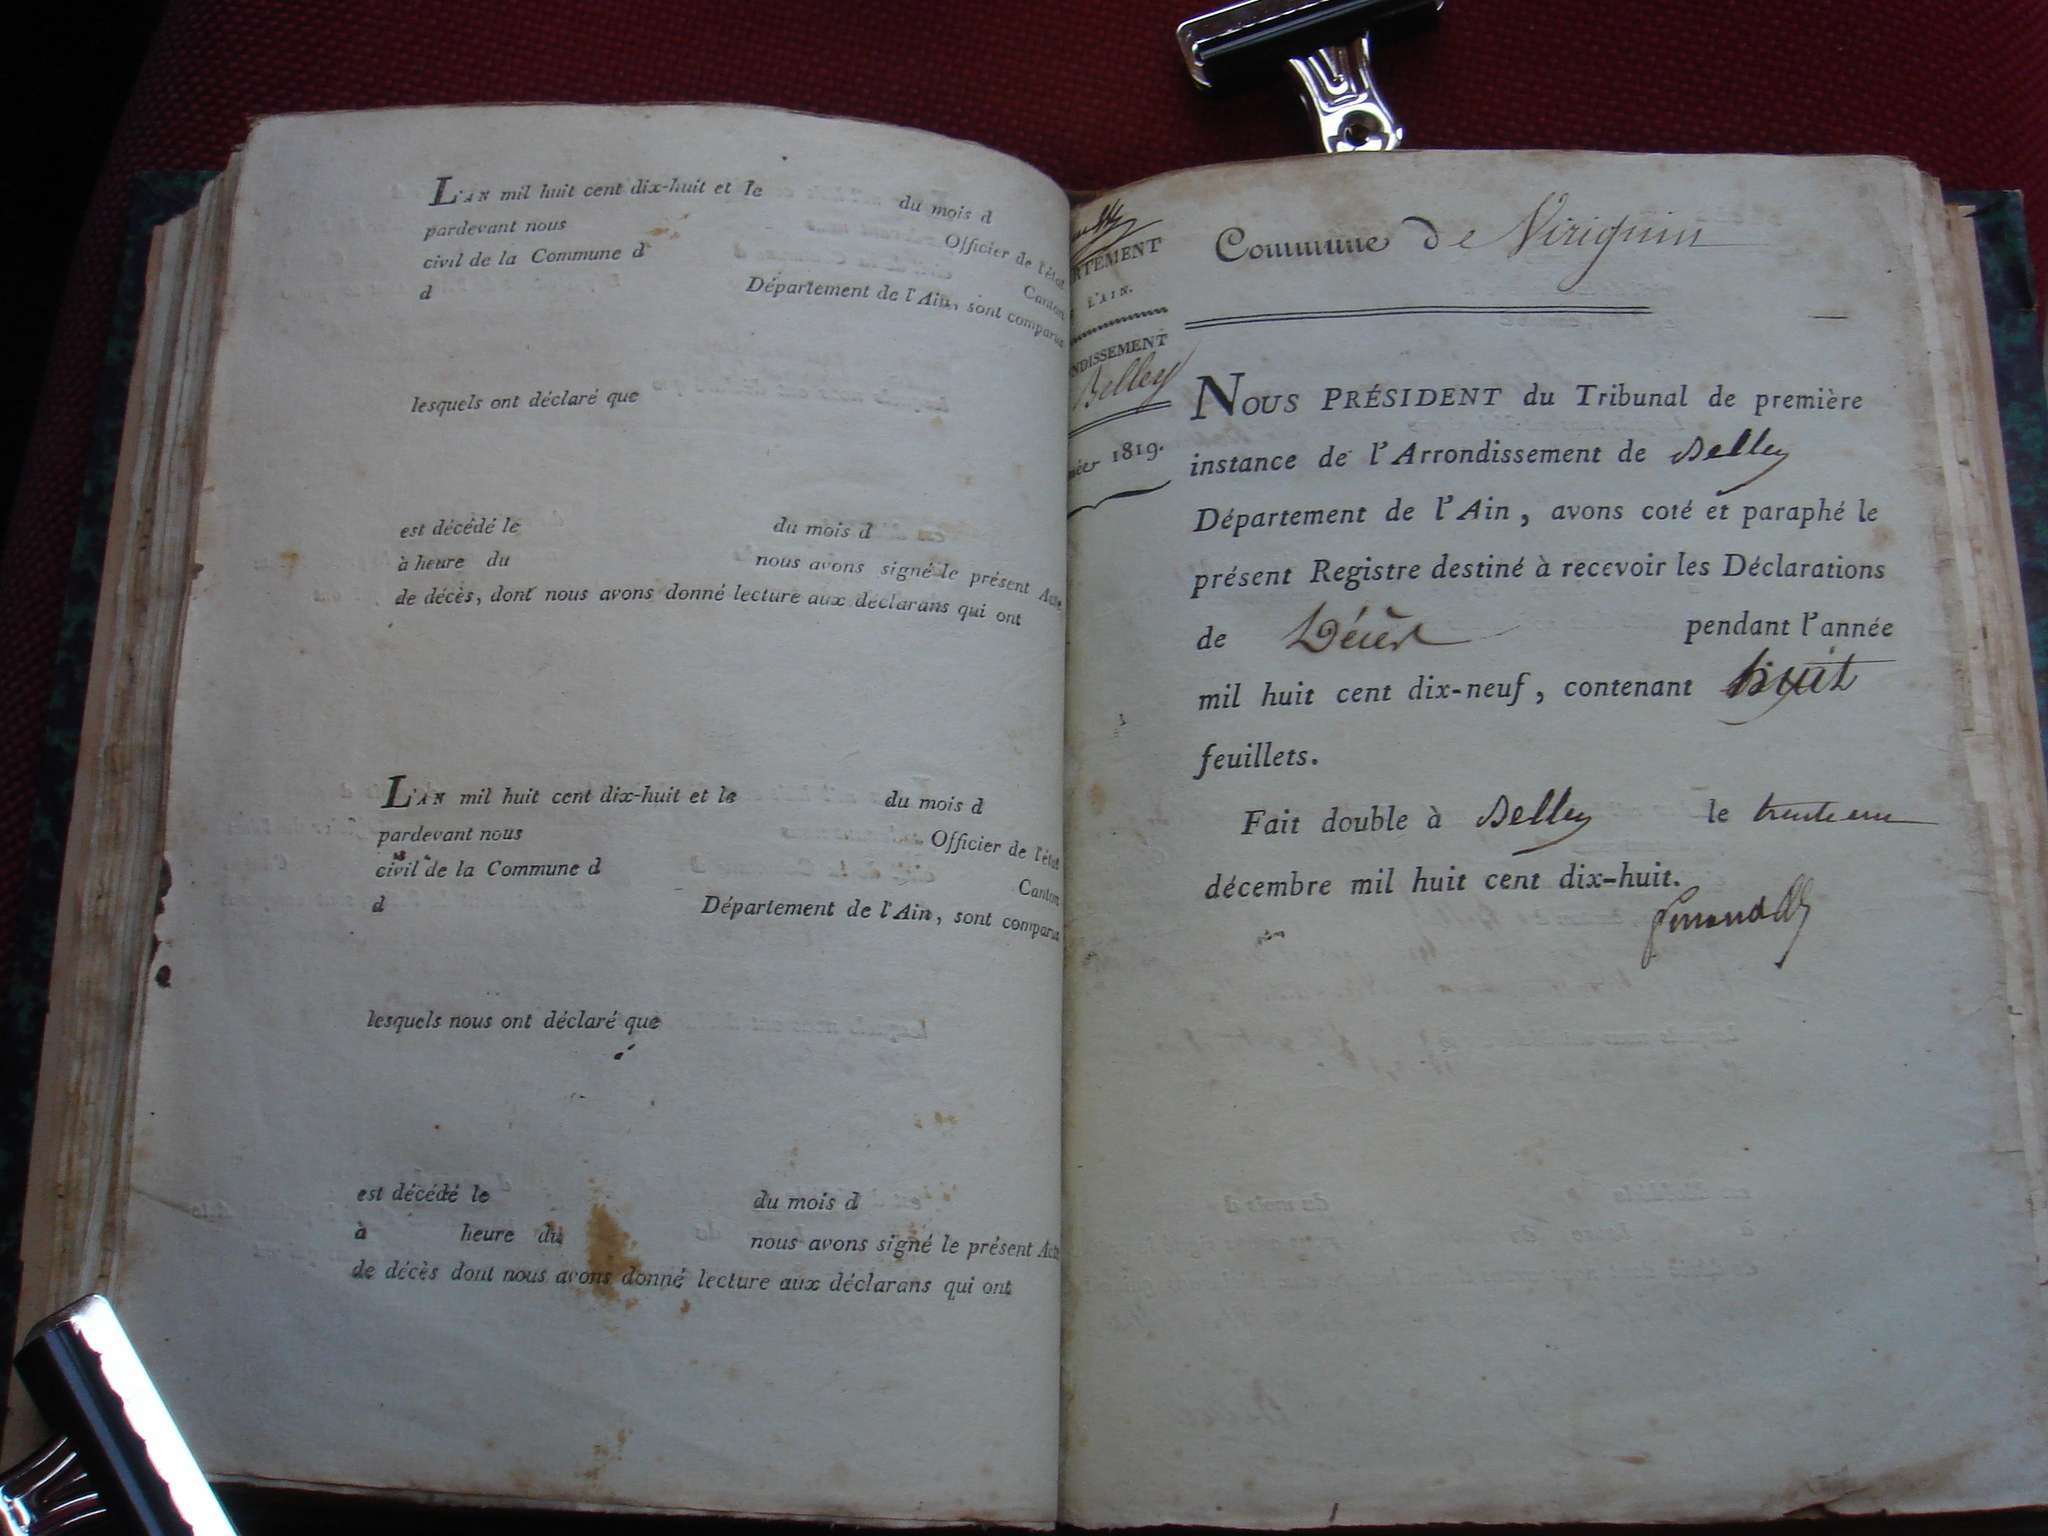 L'AN mil huit cent dix-huit et le du mois d
pardevant nous Officier de l'état
civil de la Commune d Canton
d Département de l'Ain, sont comparus
lesquels ont déclaré que
est décédé le du mois d
à heure du nous avons signé le présent Acte
de décès, dont nous avons donné lecture aux déclarans qui ont
L'AN mil huit cent dix-huit et le du mois d
pardevant nous Officier de l'état
civil de la Commune d Canton
d Département de l'Ain, sont comparus
lesquels nous ont déclaré que
est décédé le du mois d
à heure du nous avons signé le présent Acte
de décès dont nous avons donné lecture aux déclarans qui ont
RTEMENT
L'AIN.
NDISSEMENT
Belley
1819.
Commune de Virignin
NOUS PRÉSIDENT du Tribunal de première
instance de l'Arrondissement de Belley
Département de l'Ain, avons coté et paraphé le
présent Registre destiné à recevoir les Déclarations
de Décès pendant l'année
mil huit cent dix-neuf, contenant huit
feuillets.
Fait double à Belley le trente un
décembre mil huit cent dix-huit.